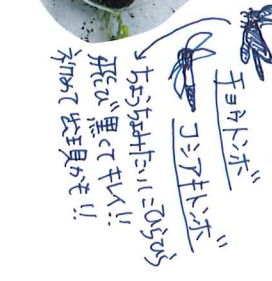 チョウトンボ
コシアキトンボ
ちょうちょみたいにひらひら
飛び黒くてキレイ!!
初めて発見かも!!